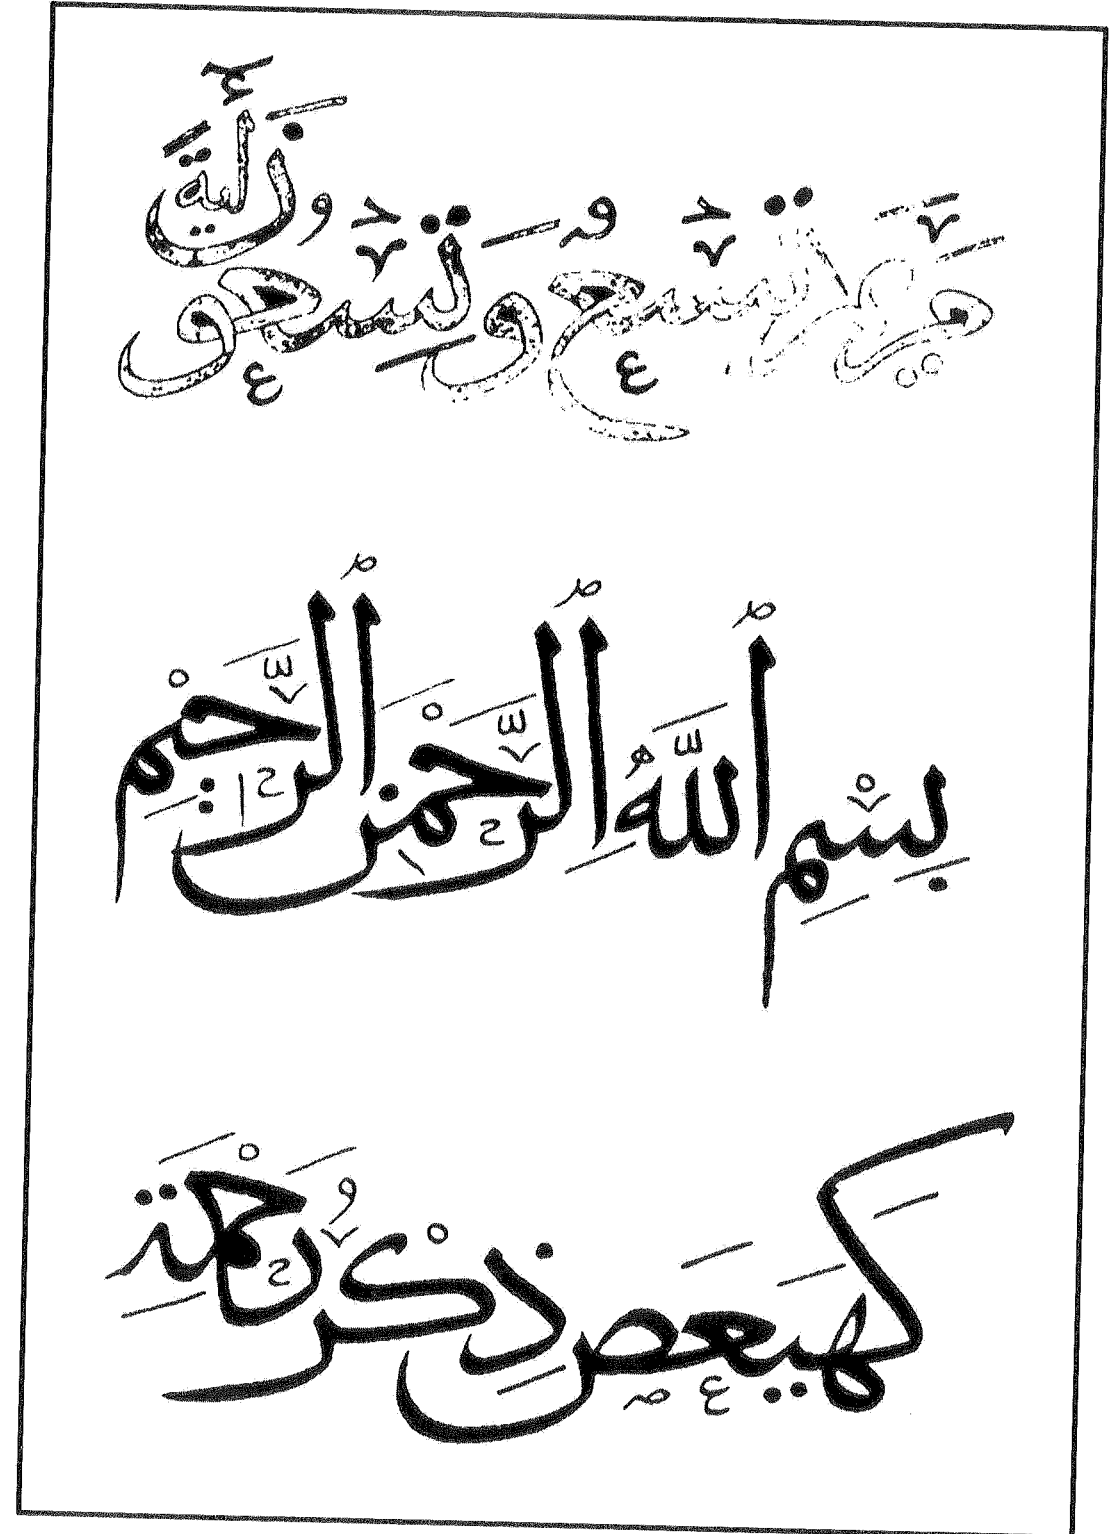 مريم تسع وتسعون آية
بِسْمِ ٱللَّهِ ٱلرَّحْمٰنِ ٱلرَّحِيْمِ
كهيعص ذِكْرُ رَحْمَةِ